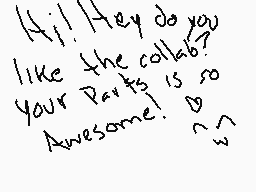 Hi! Hey do you
like the collab?
your Parts is so
Awesome! ♡
^w^